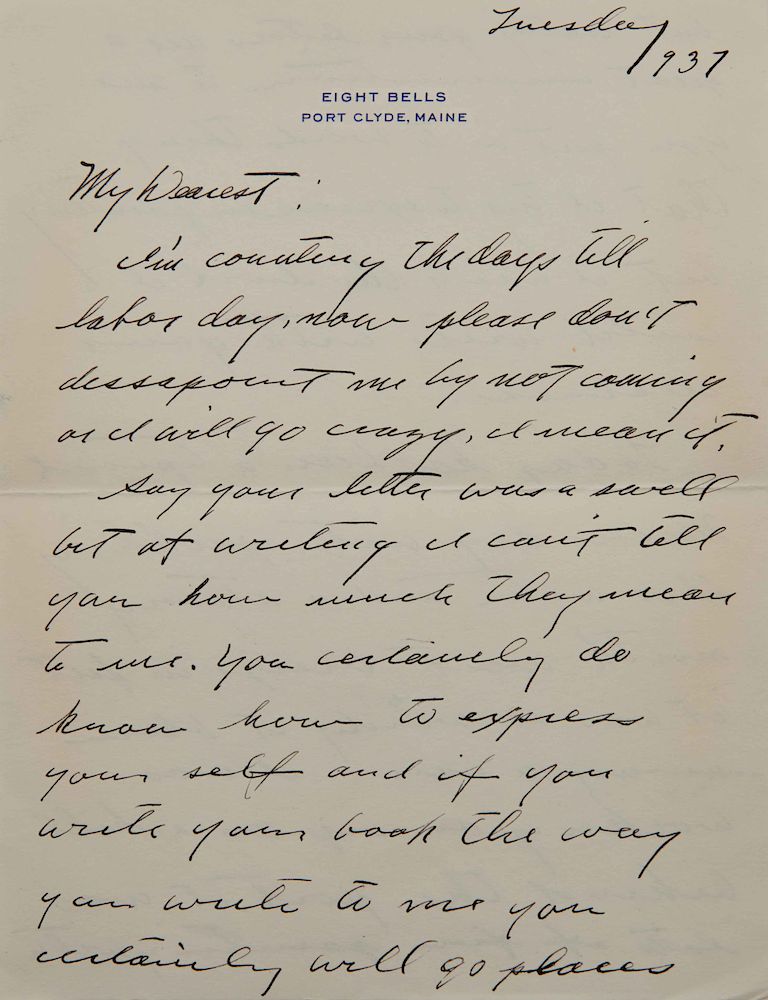 Tuesday
1937
EIGHT BELLS
PORT CLYDE, MAINE
My Dearest:
I'm counting the days till
labor day, now please don't
dessapoint me by not coming
or I will go crazy, I mean it.
Say your letter was a swell
bit of writing I can't tell
you how much they mean
to me. You certainly do
know how to express
your self and if you
write your book the way
you write to me you
certainly will go places